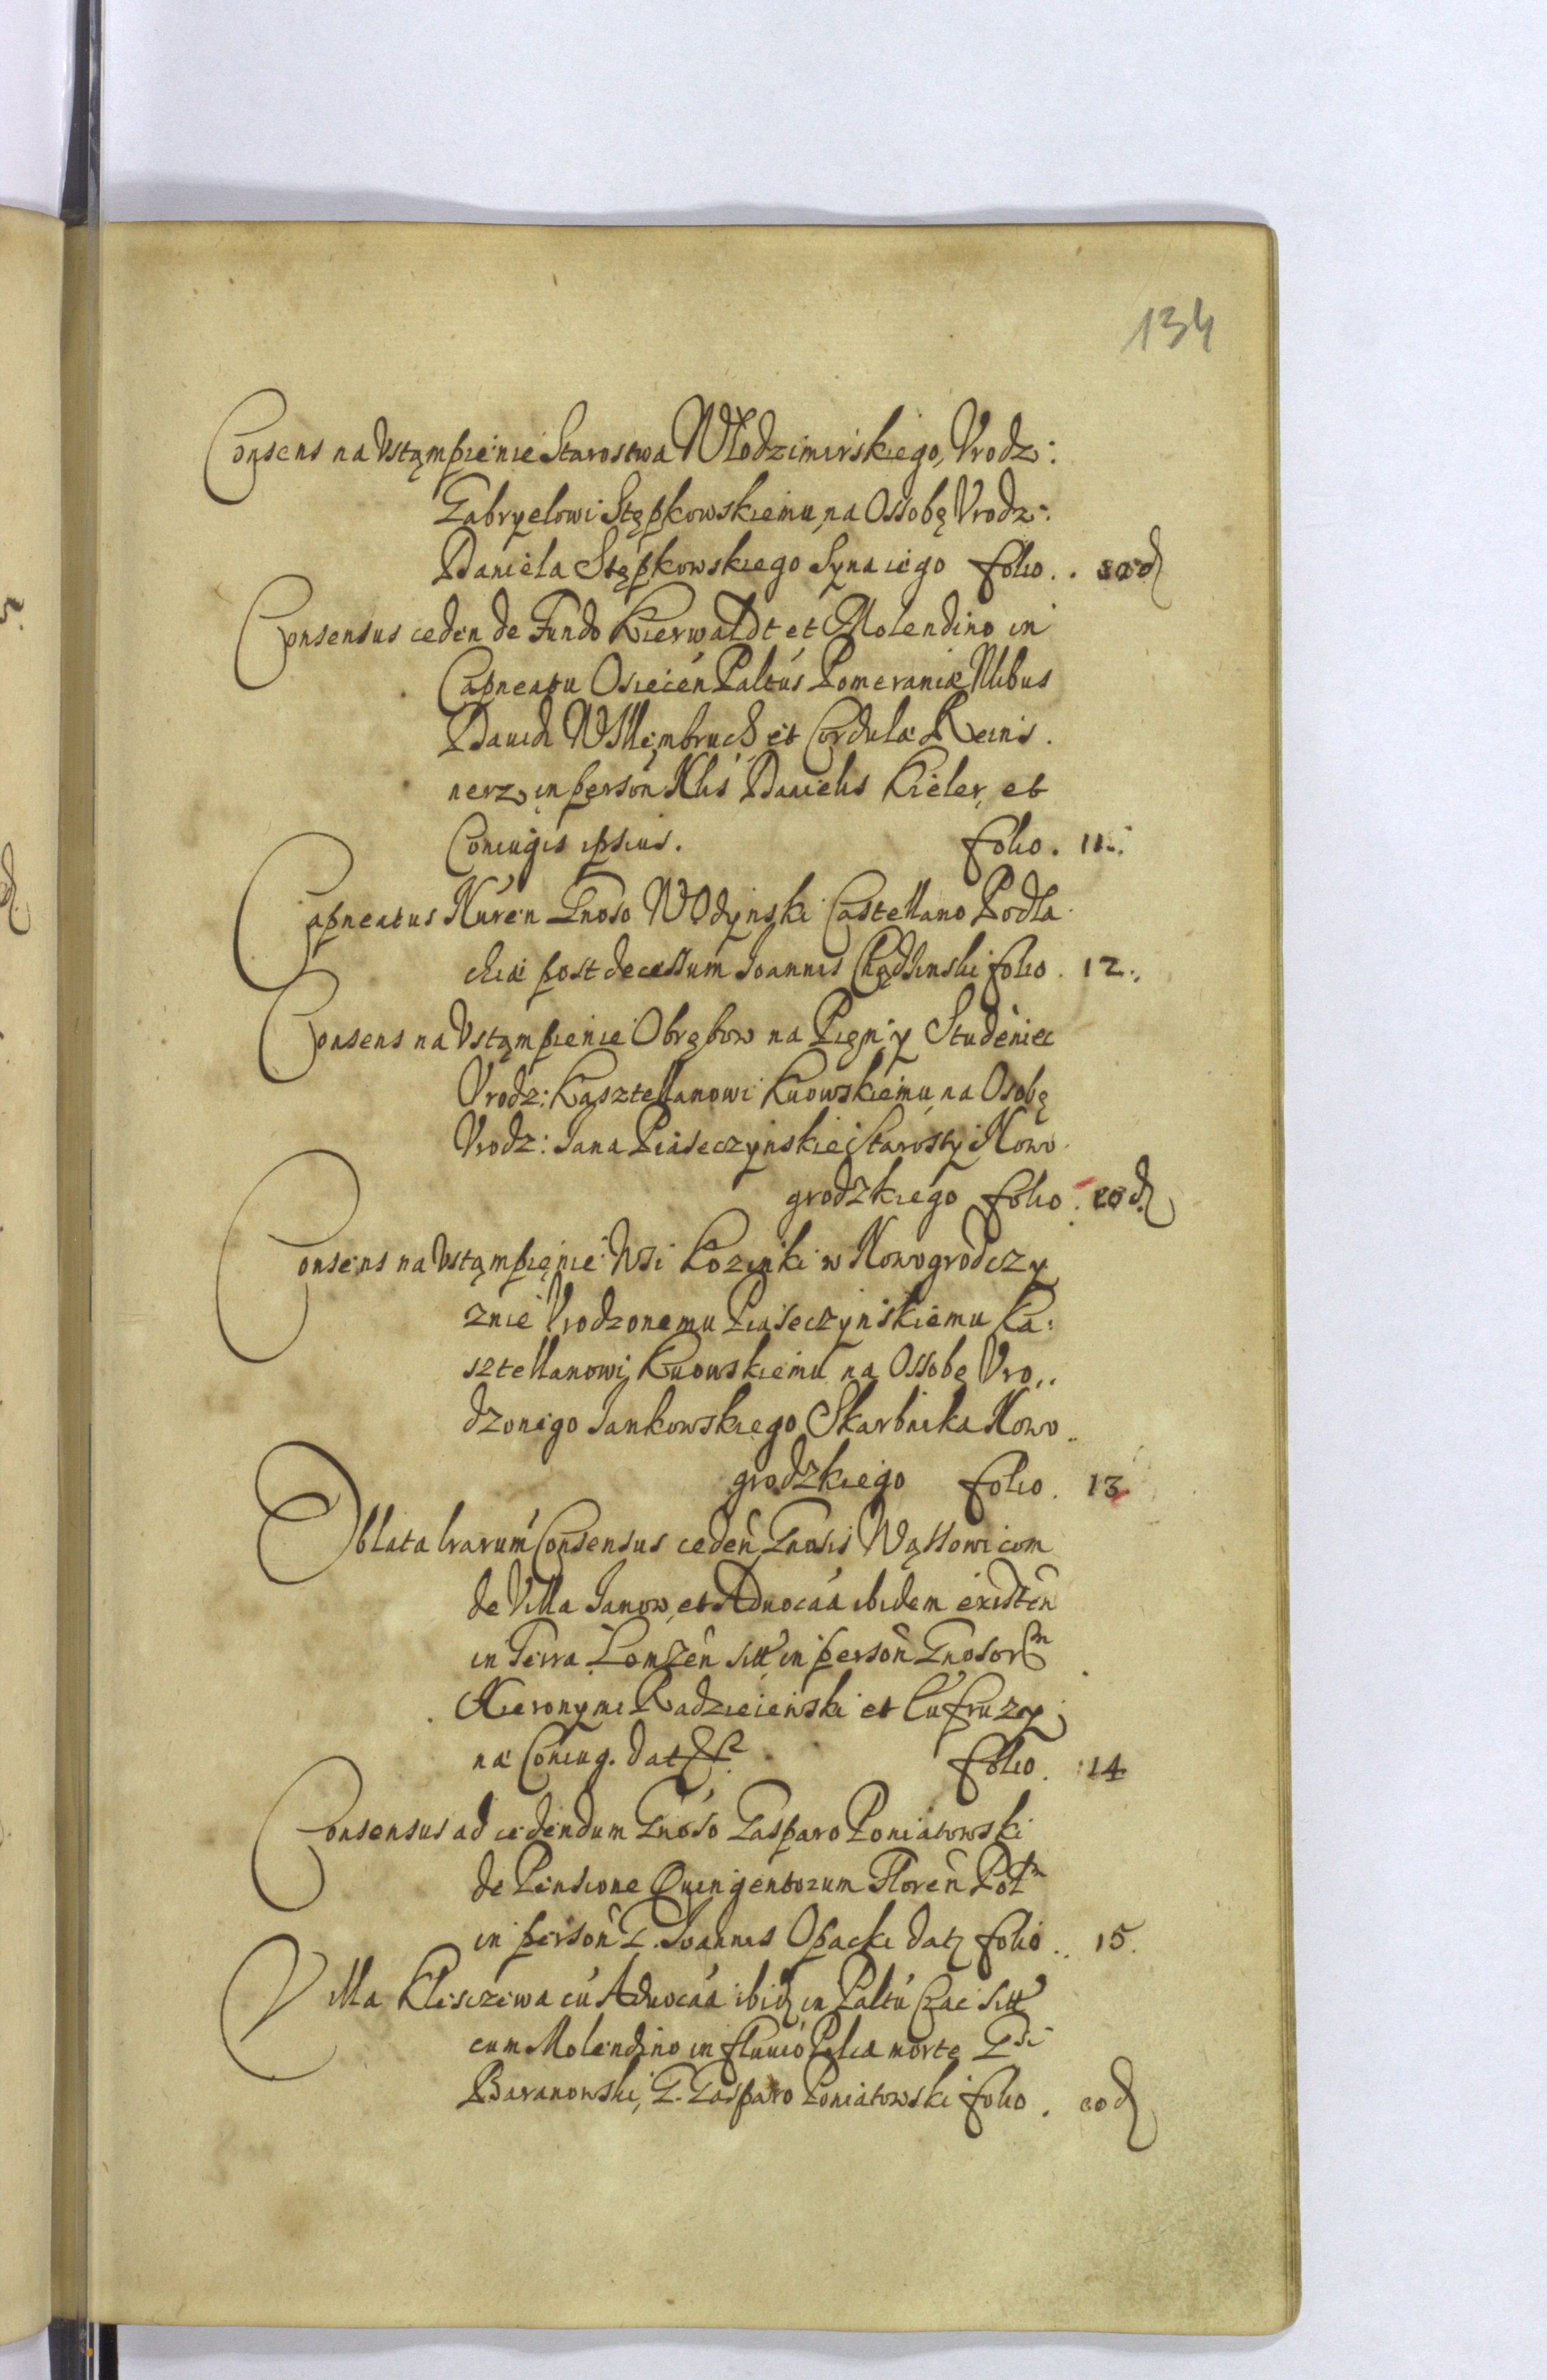 134
Consens na Vstąmpienie Starostwa Włodzimirskiego, Vrodz:
Gabryelowi Stępkowskiemu, na Ossobę Vrodz:
Daniela Stępkowskiego Syna iego folio . . eod
Consensus ceden de Fundo Kierwaldt et Molendino in
Capneatu Osiecen Paltus Pomeraniæ Nlibus
Dauidi Wllembruch et Cordula Reins.
nerz, in person Nlis Danielis Kieler, et
Coniugis ipsius. folio. 11.
Capneatus Nuren Gnoso Wodynski Castellano Podla.
chiæ post decessum Joannis Chądzinski folio. 12.
Consens na Vstąmpienie Obrębow na Pięn y Studeniec
Vrodz: Kasztellanowi Kiiowskiemu, na Osobę
Vrodz: Jana Piaseczynskie Starosty Nowo.
grodzkiego folio. eod.
Consens na Vstąmpięnie Wsi Kozinki w Nowogrodczy
znie Vrodzonemu Piaseczynskiemu Ka:
sztellanowi Kiiowskiemu na Ossobę Vro..
dzonego Jankowskiego Skarbnika Nowo.
grodzkiego folio. 13
Oblata lrarum Consensus ceden Gnosis Wąssowiczom
de Villa Janow, et Aduocaa ibidem existen
in Terra Lomzen sitt in person Gnosorm
Hieronymi Radzieienski et Eufruzy
na Coniug. dat &c folio. 14
Consensus ad cedendum Gnoso Gasparo Poniatowski
de Pensione Quingentorum Floren Polm
in person G. Joannis Opacki dat folio .. 15.
Villa Kleszczewa cu Aduocaa ibid in Paltu Rac sitt
cum Molendino in fluuio Pilia morte Gsi
Baranowski, G. Gasparo Poniatowski folio . eod